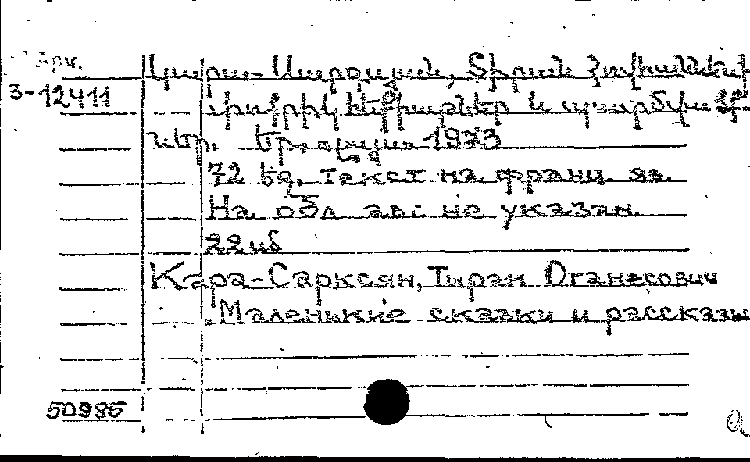 Կարա-Սարգսյան, Տիրան Հովհաննեսի
3-12411
Փոքրիկ հեքիաթներ և պատմվածք-
ներ. 1973
72 էջ. Текст на франц. яз.
На обл авт не указан.
22 սմ
Кара-Сарксян, Тиран Оганесович
Маленькие сказки и рассказы
50985